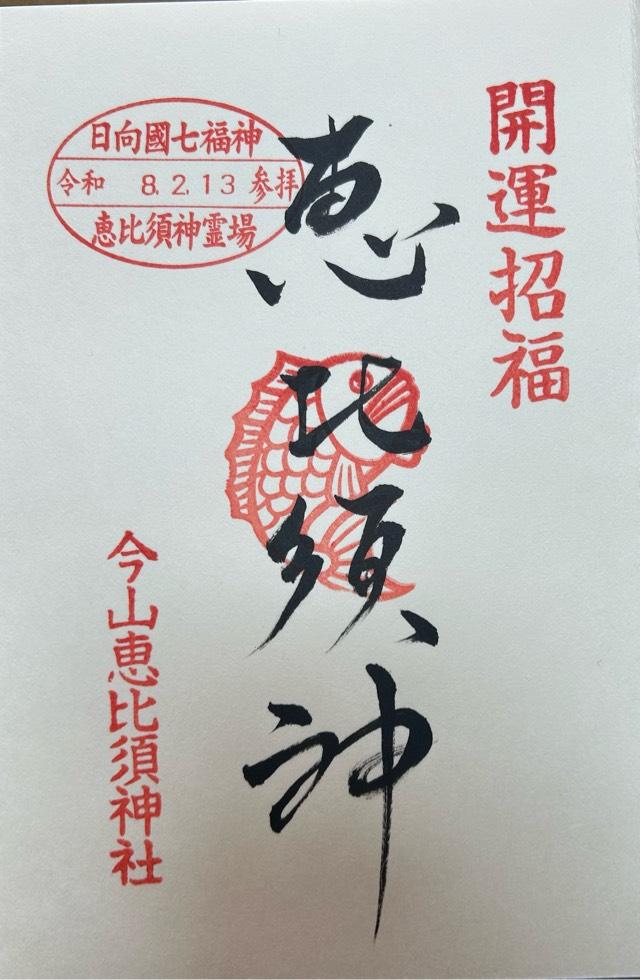 開運招福
恵比須神
日向國七福神
令和 8.2.13 参拝
恵比須神霊場
今山恵比須神社